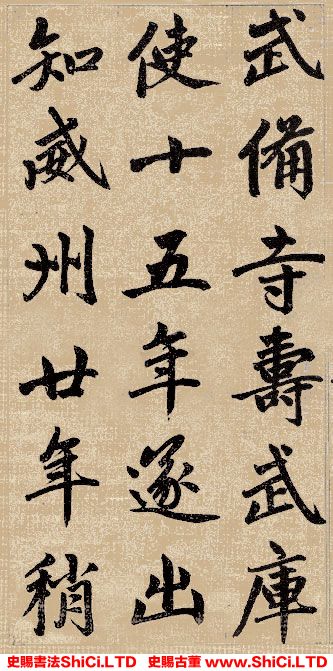 武備寺壽武庫
使十五年遂出
知威州廿年稍
史賜書法ShiCi.LTD 史賜古董 www.ShiCi.LTD